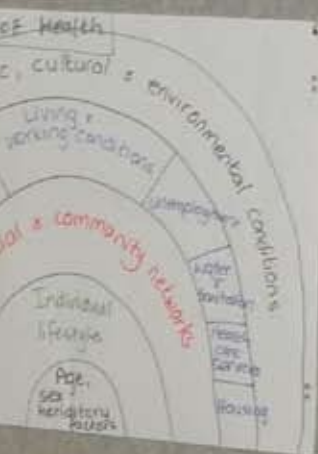 OF Health
c, cultural & environmental conditions
Living &
working conditions
unemployment
water
&
sanitation
Health
care
services
Housing
ial & community networks
Individual
lifestyle
Age,
sex
hereditary
factors